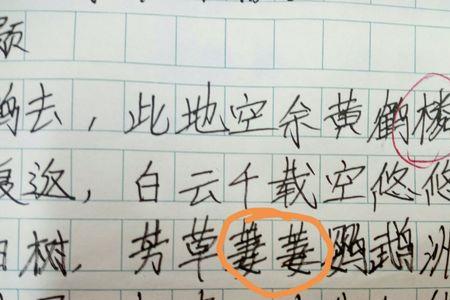 题
去，此地空余黄鹤楼
复返，白云千载空悠悠
树，芳草萋萋鹦鹉洲